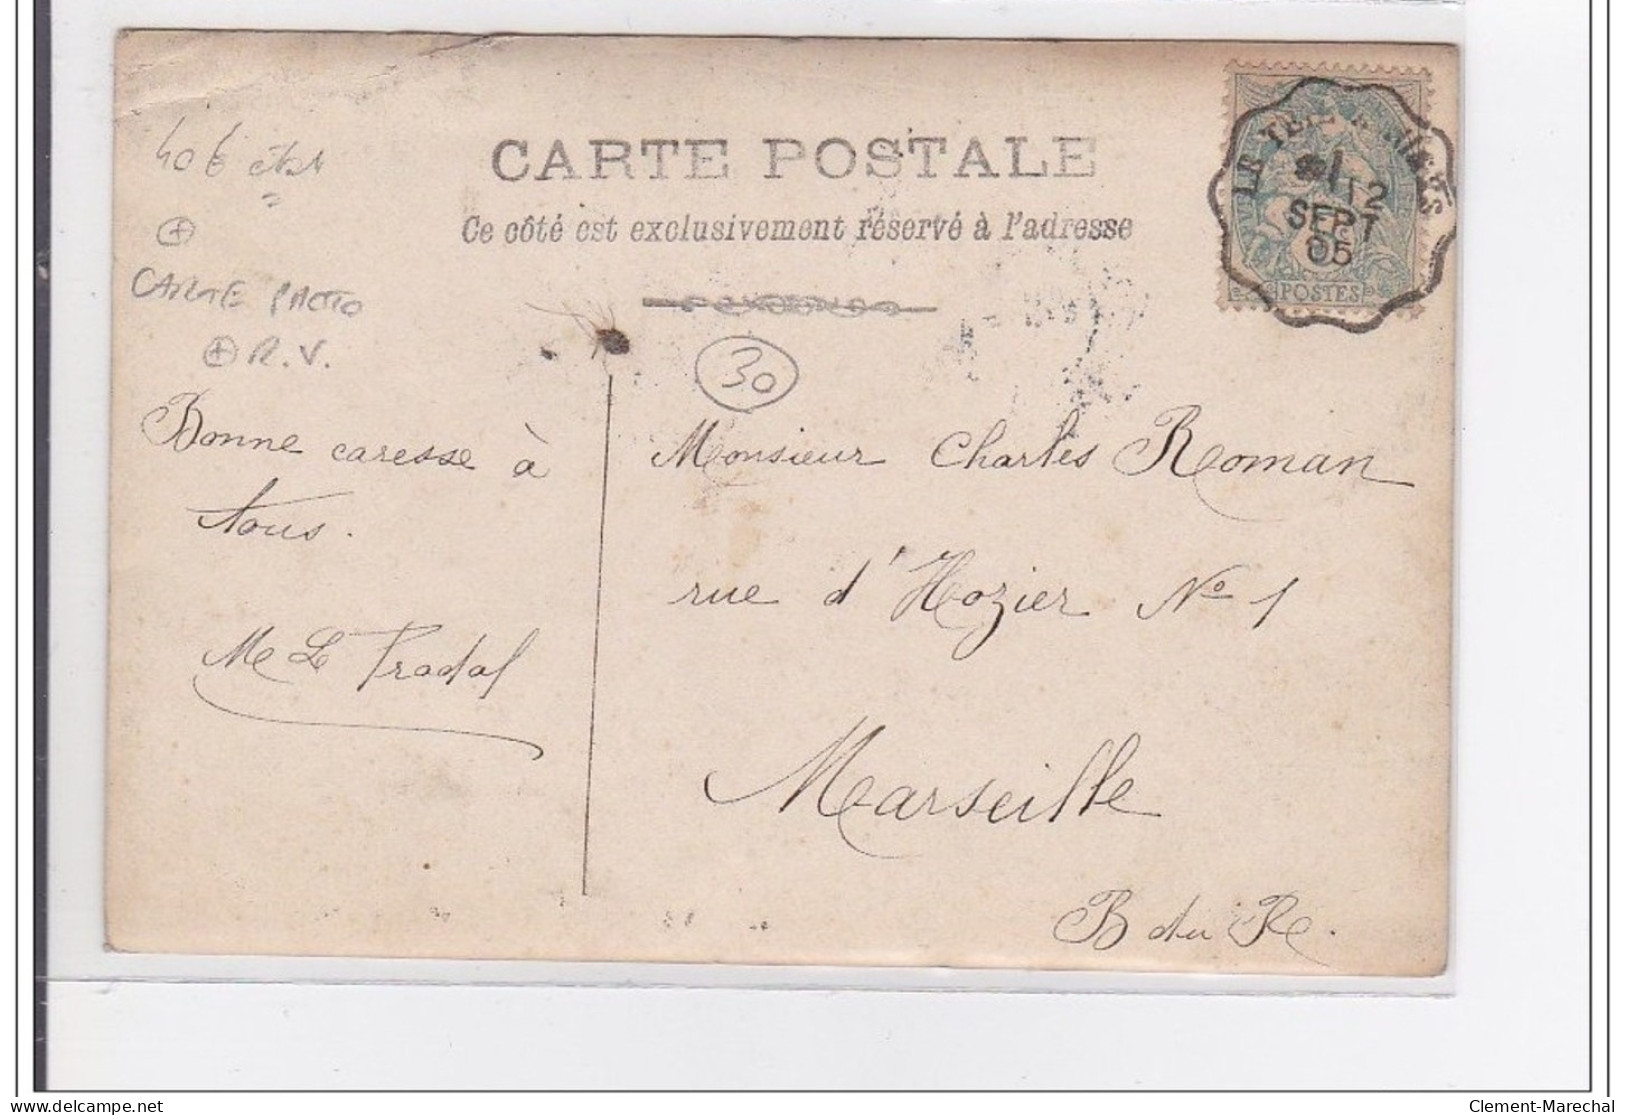 CARTE POSTALE
Ce côté est exclusivement réservé à l'adresse
LE TEIL A NIMES
12
SEPT
05
POSTES
40 €
CARTE PHOTO
R.V.
30
Bonne caresse à
tous.
M L Pradal
Monsieur Charles Roman
rue d'Hozier No 1
Marseille
B du R.
Clement-Marechal